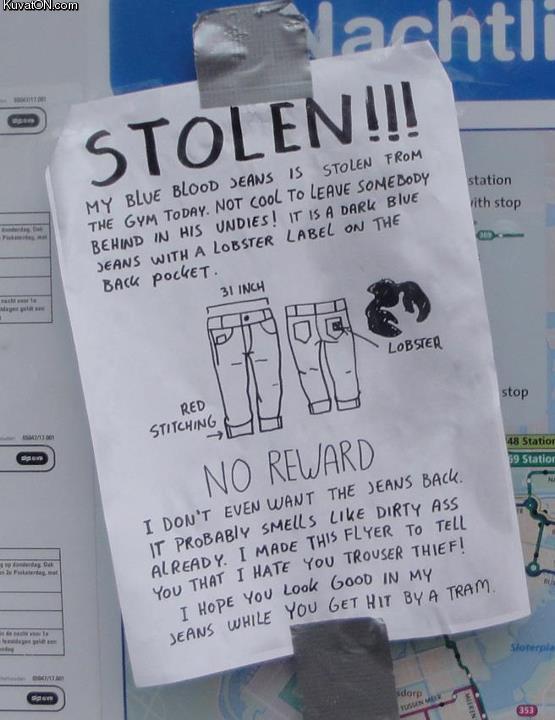 KuvatON.com
Nachtli
STOLEN!!!
MY BLUE BLOOD JEANS IS STOLEN FROM
THE GYM TODAY. NOT COOL TO LEAVE SOMEBODY
BEHIND IN HIS UNDIES! IT IS A DARK BLUE
JEANS WITH A LOBSTER LABEL ON THE
BACK POCKET.
31 INCH
LOBSTER
RED
STITCHING
NO REWARD
I DON'T EVEN WANT THE JEANS BACK.
IT PROBABLY SMELLS LIKE DIRTY ASS
ALREADY. I MADE THIS FLYER TO TELL
YOU THAT I HATE YOU TROUSER THIEF!
I HOPE YOU LOOK GOOD IN MY
JEANS WHILE YOU GET HIT BY A TRAM.
station
with stop
369
stop
48 Station
69 Station
Sloterpla
sdorp
TUSSEN MEER
353